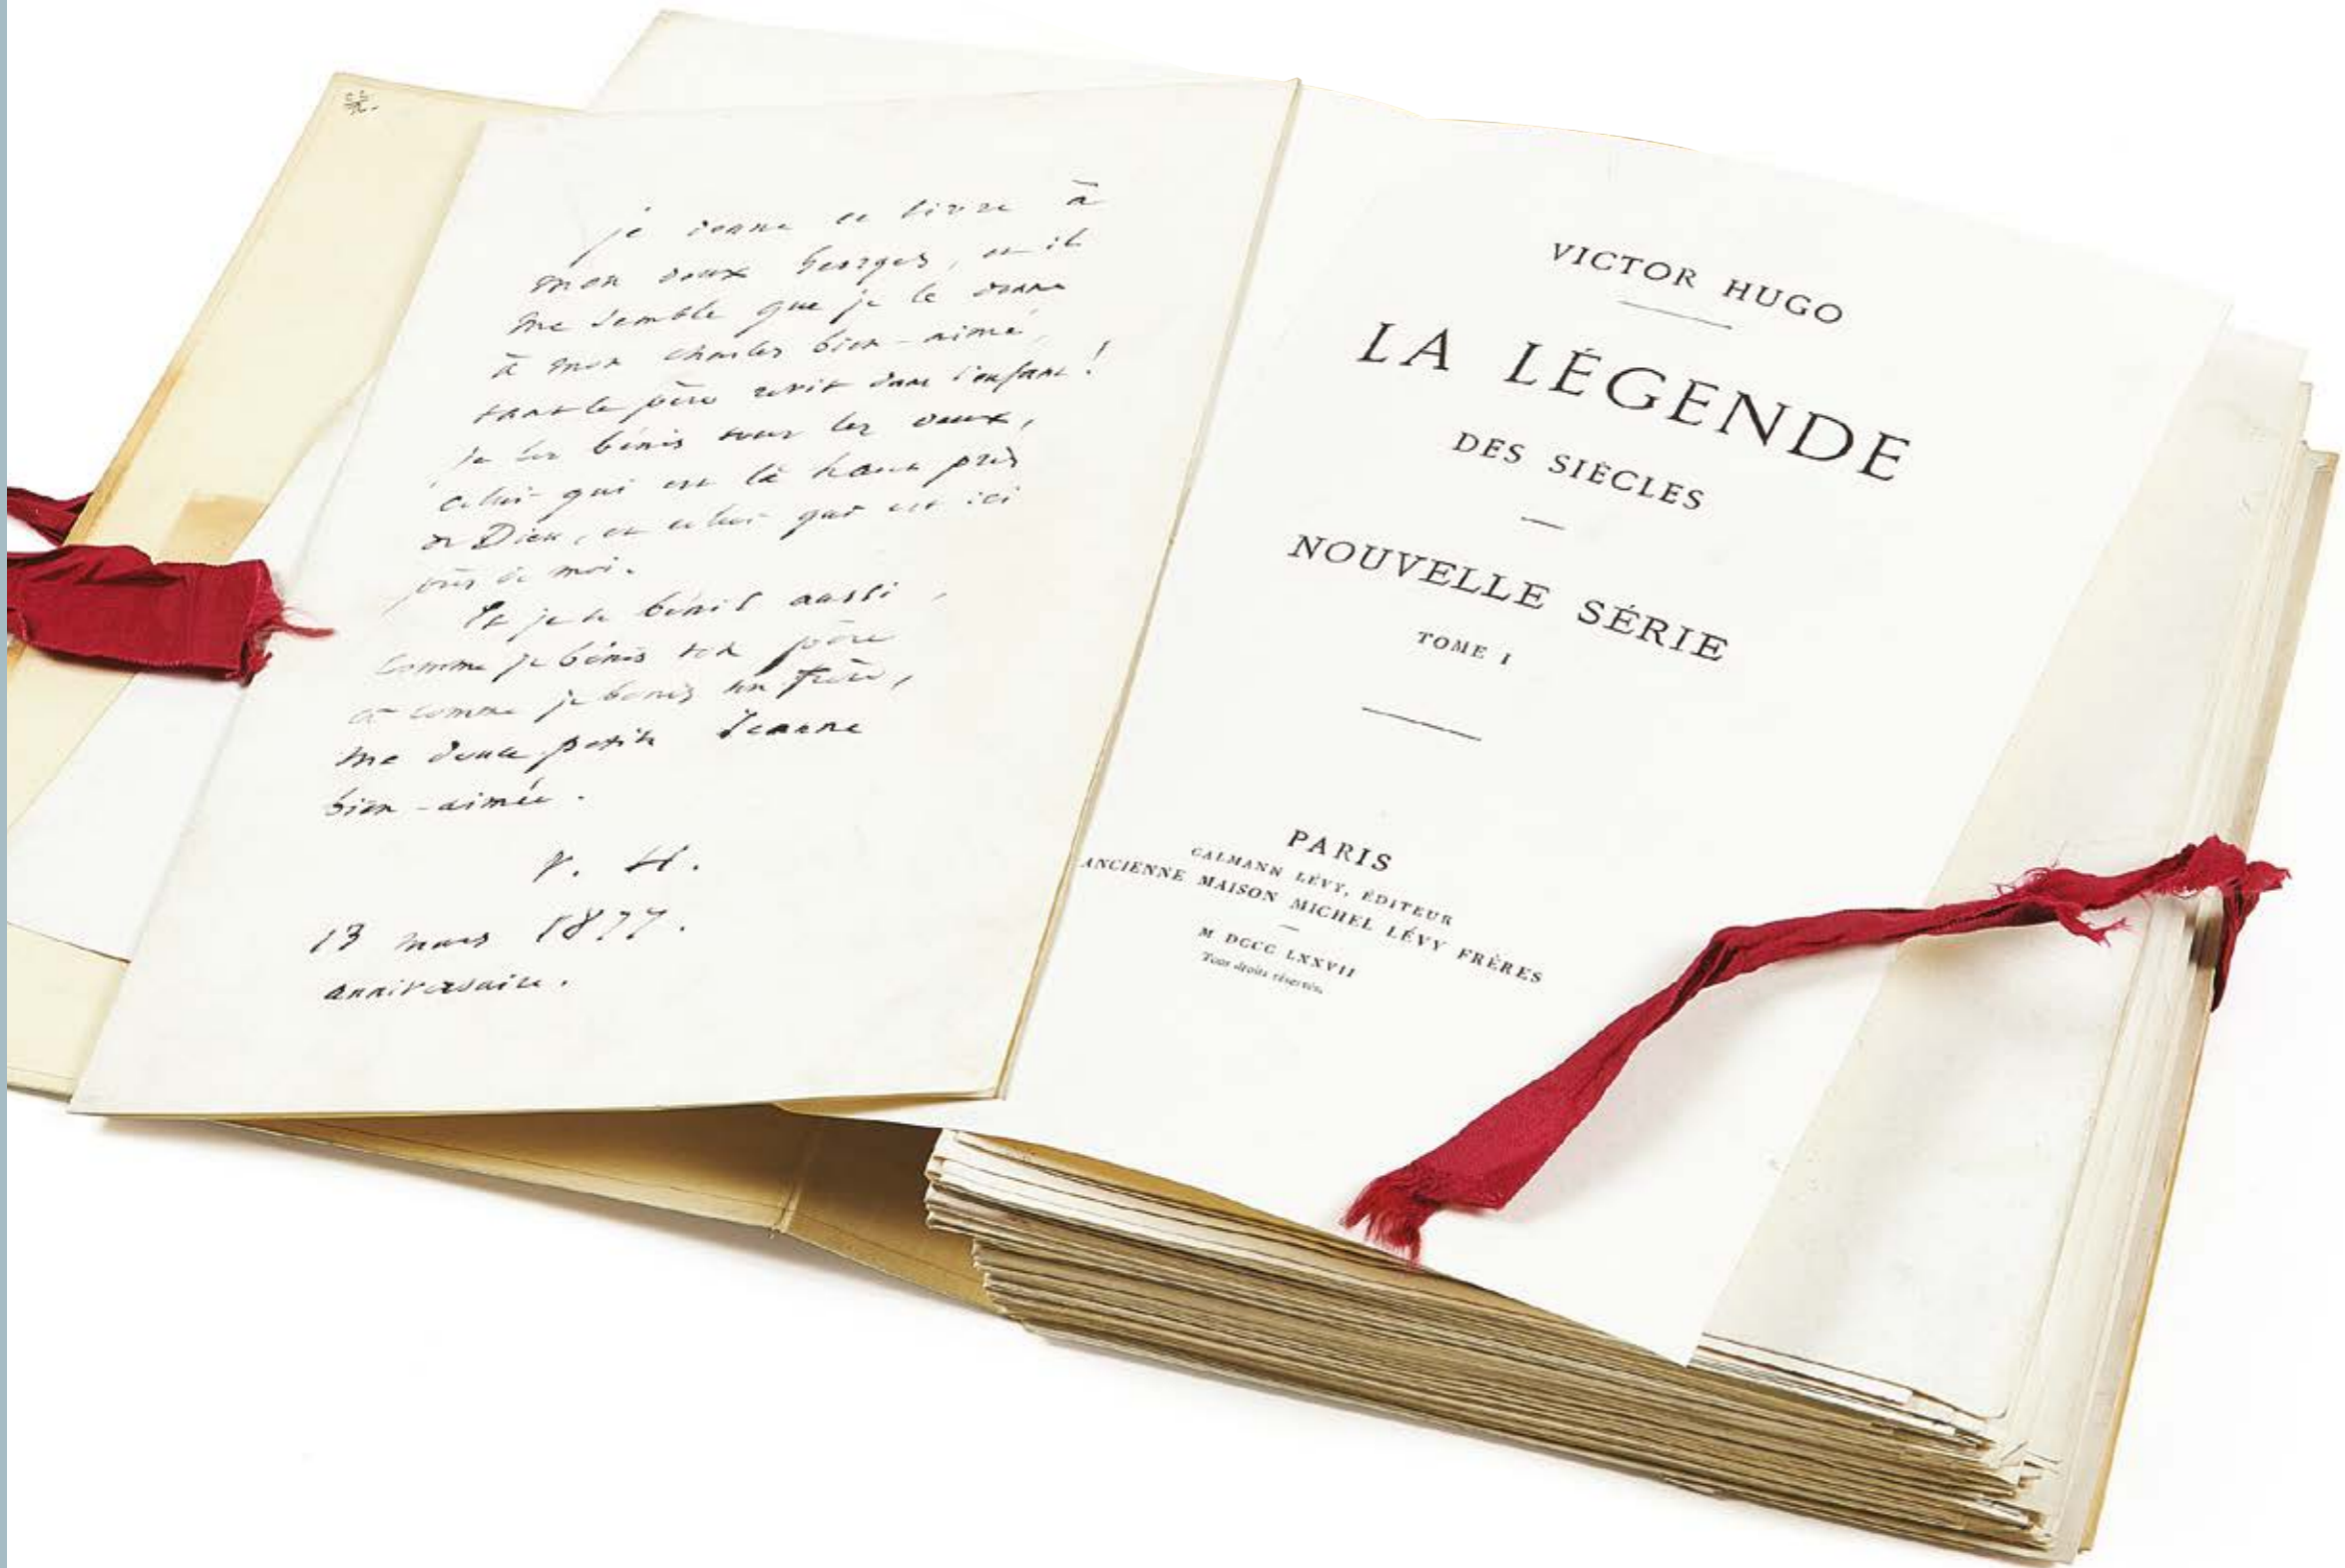 je donne ce livre à
mon doux Georges, et il
me semble que je le donne
à mon Charles bien-aimé,
tant le père revit dans l'enfant!
je les bénis tous les deux,
celui qui est là haut près
de Dieu, et celui qui est ici
près de moi.
Et je te bénis aussi,
comme je bénis ton père
et comme je bénis ton frère,
ma douce petite Jeanne
bien-aimée.
V. H.
13 mars 1877.
anniversaire.
VICTOR HUGO
LA LÉGENDE
DES SIÈCLES
NOUVELLE SÉRIE
TOME I
PARIS
CALMANN LÉVY, ÉDITEUR
ANCIENNE MAISON MICHEL LÉVY FRÈRES
M DCCC LXXVII
Tous droits réservés.